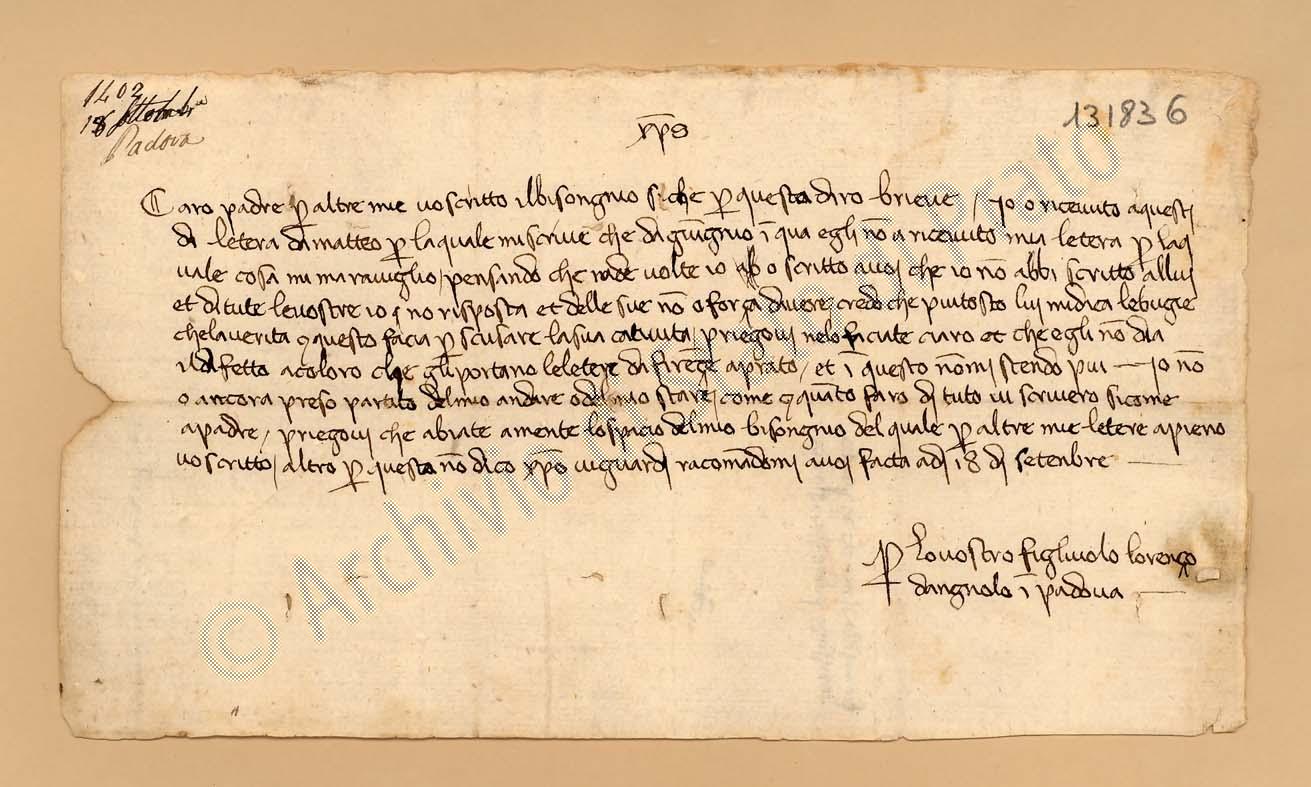 1402
18 Settembre
Padova
131836
xp̄s
Caro padre p̱ altre mie vo scritto il bisongnio siche p̱ questa diro brieve / Jo o ricevuto a questi
di letera di matteo p̱ la quale mi scrive che di giungnio ī qua egli nō a ricevuto mia letera p̱ laq
uale cosa mi maraviglio / pensando che rade volte io o scritto a voi che io nō abbi scritto allui
et di tute le vostre io no risposta et delle sue nō o forza davere credo che piutosto lui mi dica le bugie
che la verita questo facia p̱ scusare la sua cativita / priegovi nelo faciate ciaro et che egli nō dia
il difetto a coloro che gli portano le letere di firēze a prato / et ī questo nō mi stendo piu — Jo nō
o ancora preso partito del mio andare o del mio stare / come quāto faro di tuto vi scrivero sicome
a padre / priegovi che abiate a mente lo spacio del mio bisongnio del quale p̱ altre mie letere apieno
vo scritto / altro p̱ questa nō dico xp̄o vi guardi racomādomi a voi facta adi 18 di setenbre —
p̱ lo vostro figliuolo lorenzo
dangnolo ī padova —
© Archivio di Stato di Prato